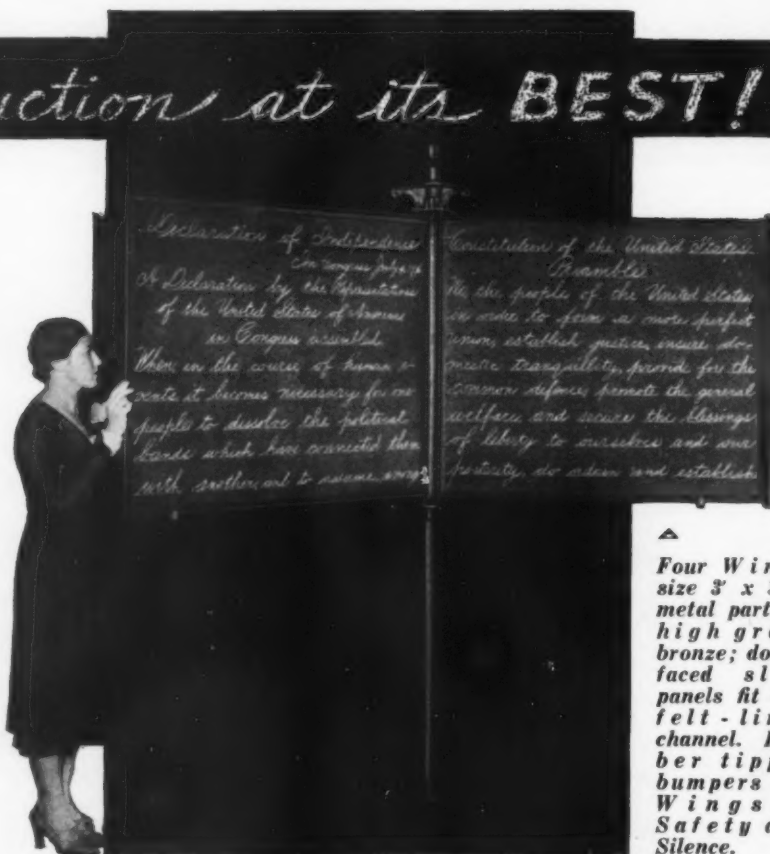 uction at its BEST!
Declaration of Independence
In Congress July 4
A Declaration by the Representatives
of the United States of America
in Congress assembled
When in the course of human e-
vents it becomes necessary for one
people to dissolve the political
bands which have connected them
with another, and to assume among
Constitution of the United States
Preamble
We the people of the United States
in order to form a more perfect
union, establish justice, insure do-
mestic tranquillity, provid for the
common defence, promote the general
welfare and secure the blessings
of liberty to ourselves and our
posterity, do and establish
Four Win
size 3' x
metal part
high gr
bronze; do
faced sl
panels fit
felt-li
channel.
ber tipp
bumpers
Wings
Safety
Silence.